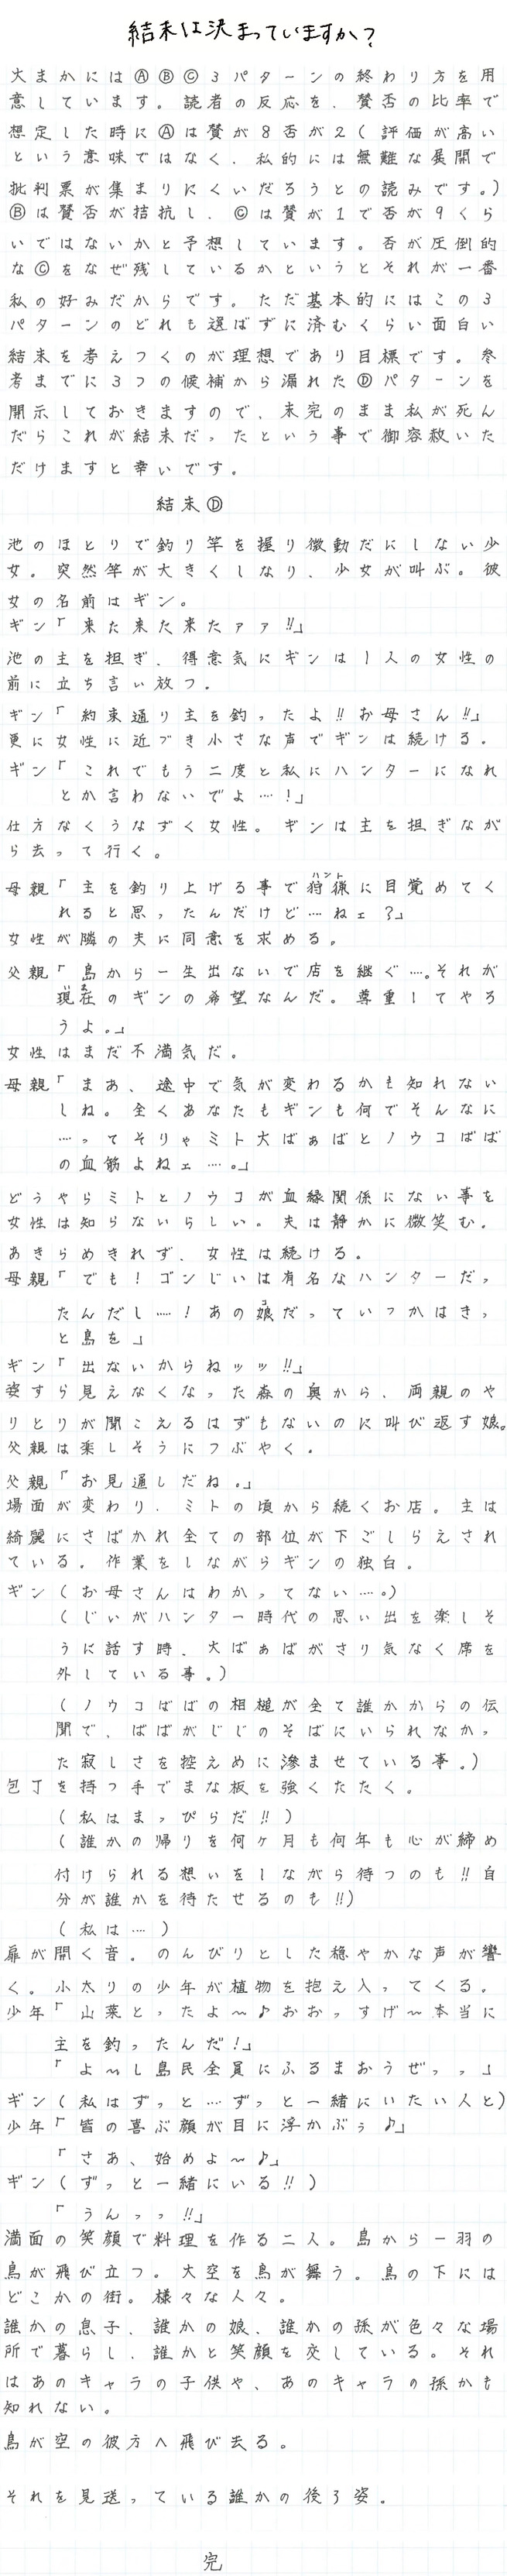 結末は決まっていますか？
大まかにはⒶⒷⒸ3パターンの終わり方を用
意しています。読者の反応を、賛否の比率で
想定した時にⒶは賛が8否が2(評価が高い
という意味ではなく、私的には無難な展開で
批判票が集まりにくいだろうとの読みです。)
Ⓑは賛否が拮抗し、Ⓒは賛が1で否が9くら
いではないかと予想しています。否が圧倒的
なⒸをなぜ残しているかというとそれが一番
私の好みだからです。ただ基本的にはこの3
パターンのどれも選ばずに済むくらい面白い
結末を考えつくのが理想であり目標です。参
考までに3つの候補から漏れたⒹパターンを
開示しておきますので、未完のまま私が死ん
だらこれが結末だったという事で御容赦いた
だけますと幸いです。
結末Ⓓ
池のほとりで釣り竿を握り微動だにしない少
女。突然竿が大きくしなり、少女が叫ぶ。彼
女の名前はギン。
ギン「来た来た来たァァ!!」
池の主を担ぎ、得意気にギンは1人の女性の
前に立ち言い放つ。
ギン「約束通り主を釣ったよ!!お母さん!!」
更に女性に近づき小さな声でギンは続ける。
ギン「これでもう二度と私にハンターになれ
とか言わないでよ…！」
仕方なくうなずく女性。ギンは主を担ぎなが
ら去って行く。
母親「主を釣り上げる事で狩猟(ハント)に目覚めてく
れると思ったんだけど…ねェ？」
女性が隣の夫に同意を求める。
父親「島から一生出ないで店を継ぐ…。それが
現在(いま)のギンの希望なんだ。尊重してやろ
うよ。」
女性はまだ不満気だ。
母親「まあ、途中で気が変わるかも知れない
しね。全くあなたもギンも何でそんなに
…ってそりゃミト大ばぁばとノウコばば
の血筋よねェ…。」
どうやらミトとノウコが血縁関係にない事を
女性は知らないらしい。夫は静かに微笑む。
あきらめきれず、女性は続ける。
母親「でも！ゴンじいは有名なハンターだっ
たんだし…！あの娘(コ)だっていつかはきっ
と島を」
ギン「出ないからねッッ!!」
姿すら見えなくなった森の奥から、両親のや
りとりが聞こえるはずもないのに叫び返す娘。
父親は楽しそうにつぶやく。
父親「お見通しだね。」
場面が変わり、ミトの頃から続くお店。主は
綺麗にさばかれ全ての部位が下ごしらえされ
ている。作業をしながらギンの独白。
ギン(お母さんはわかってない…。)
(じいがハンター時代の思い出を楽しそ
うに話す時、大ばぁばがさり気なく席を
外している事。)
(ノウコばばの相槌が全て誰かからの伝
聞で、ばばがじじのそばにいられなかっ
た寂しさを控えめに滲ませている事。)
包丁を持つ手でまな板を強くたたく。
(私はまっぴらだ!!)
(誰かの帰りを何ヶ月も何年も心が締め
付けられる想いをしながら待つのも!!自
分が誰かを待たせるのも!!)
(私は…)
扉が開く音。のんびりとした穏やかな声が響
く。小太りの少年が植物を抱え入ってくる。
少年「山菜とったよ〜♪おおっすげ〜本当に
主を釣ったんだ！」
「よ〜し島民全員にふるまおうぜっっ」
ギン(私はずっと…ずっと一緒にいたい人と)
少年「皆の喜ぶ顔が目に浮かぶぅ♪」
「さあ、始めよ〜♪」
ギン(ずっと一緒にいる!!)
「うんっっ!!」
満面の笑顔で料理を作る二人。島から一羽の
鳥が飛び立つ。大空を鳥が舞う。鳥の下には
どこかの街。様々な人々。
誰かの息子、誰かの娘、誰かの孫が色々な場
所で暮らし、誰かと笑顔を交している。それ
はあのキャラの子供や、あのキャラの孫かも
知れない。
鳥が空の彼方へ飛び去る。
それを見送っている誰かの後ろ姿。
完